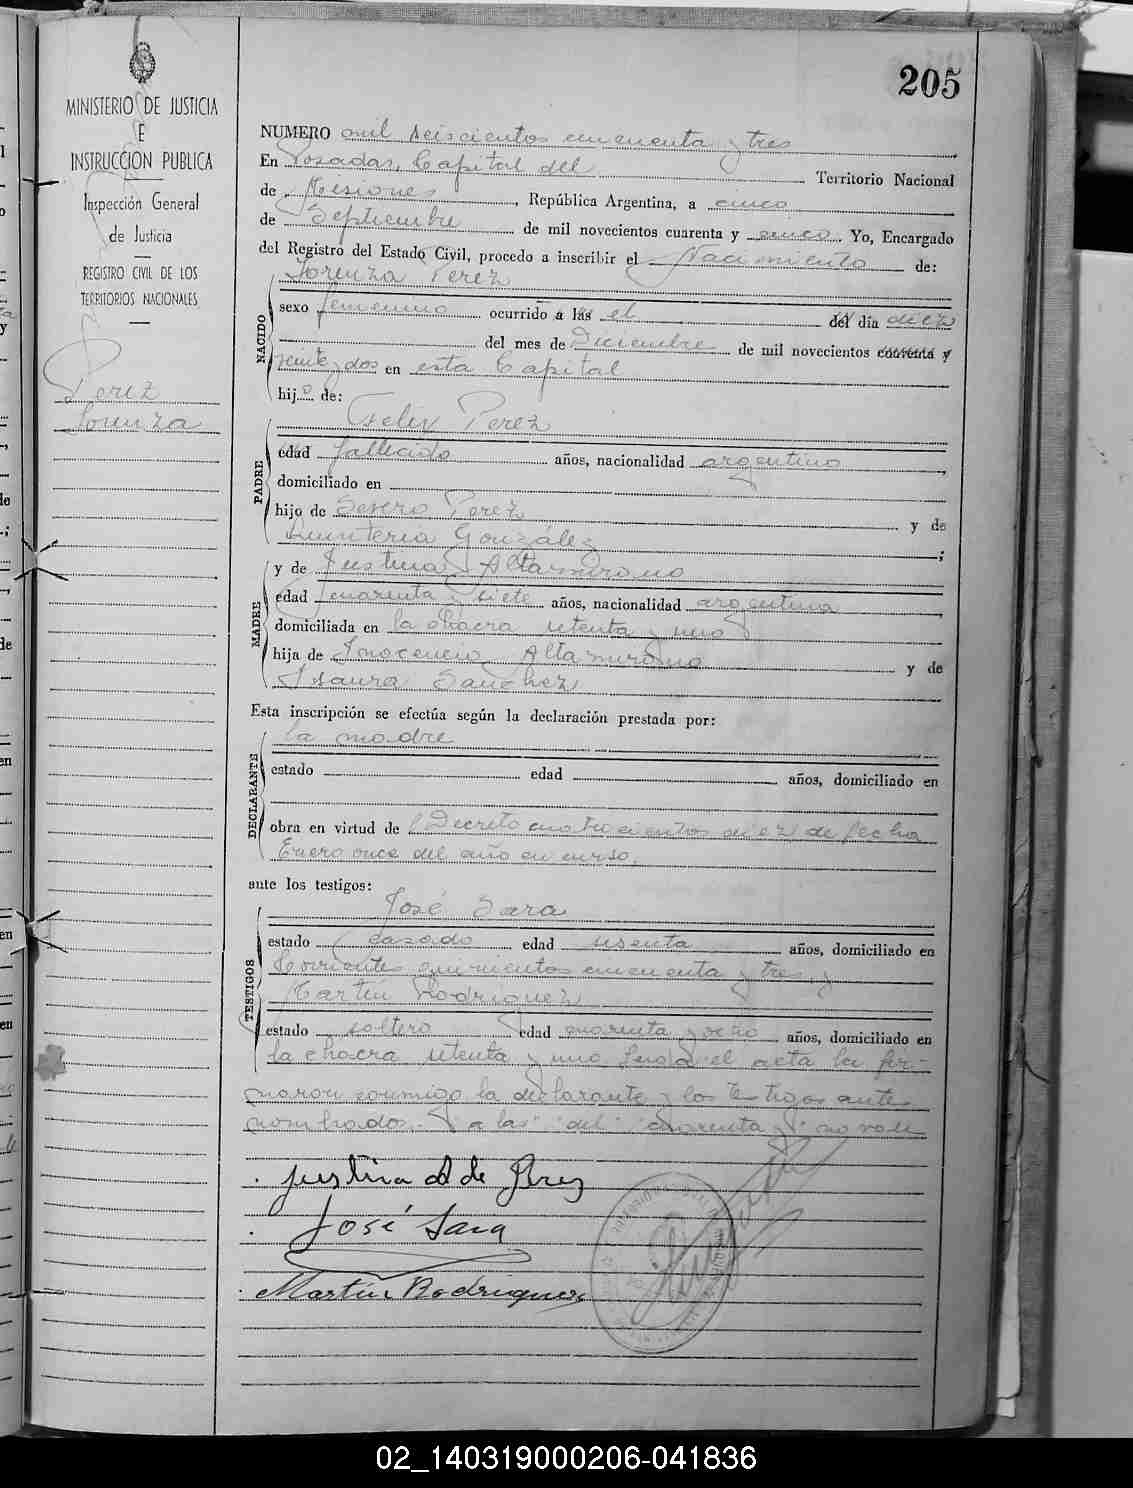 205
MINISTERIO DE JUSTICIA
E
INSTRUCCION PUBLICA
Inspección General
de Justicia
REGISTRO CIVIL DE LOS
TERRITORIOS NACIONALES
Perez
Lorenza
NUMERO mil seiscientos cincuenta y tres
En Posadas, Capital del Territorio Nacional
de Misiones, República Argentina, a cinco
de Septiembre de mil novecientos cuarenta y cinco. Yo, Encargado
del Registro del Estado Civil, procedo a inscribir el Nacimiento de:
Lorenza Perez
NACIDO
sexo femenino ocurrido a las el del día diez
del mes de Diciembre de mil novecientos cuarenta y
veinte y dos en esta Capital
hija de:
Felix Perez
PADRE
edad fallecido años, nacionalidad argentino,
domiciliado en
hijo de Severo Perez y de
Quinteria González;
y de Justina Altamirano
MADRE
edad cuarenta y siete años, nacionalidad argentina
domiciliada en la chacra setenta y uno
hija de Inocencio Altamirano y de
Isaura Sanchez
Esta inscripción se efectúa según la declaración prestada por:
la madre
DECLARANTE
estado edad años, domiciliado en
obra en virtud de Decreto cuatrocientos diez de fecha
Enero once del año en curso,
ante los testigos:
José Sara
TESTIGOS
estado casado edad sesenta años, domiciliado en
Corrientes quinientos cincuenta y tres, y
Martín Rodriguez
estado soltero edad cuarenta y ocho años, domiciliado en
la chacra setenta y uno. Leida el acta la fir-
maron conmigo la declarante y los testigos ante
nombrados. "a las" "del" "cuarenta y" no vale
Justina A de Perez
José Sara
Martín Rodriguez
02_140319000206-041836